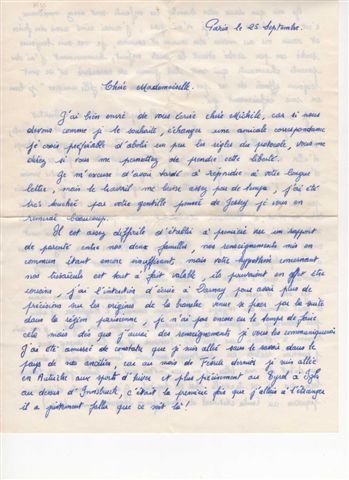 Paris le 25 Septembre.
Chère Mademoiselle.
J'ai bien envie de vous écrire chère Michèle, car si nous
devons comme je le souhaite, échanger une amicale correspondance
je crois préférable d'aboli un peu les règles du protocole, vous me
direz si vous me permettez de prendre cette liberté.
Je m'excuse d'avoir tardé à répondre à votre longue
lettre, mais le travail me laisse assez peu de temps, j'ai été
très touché par votre gentille pensée de je vous en
remercie beaucoup.
Il est assez difficile d'établi à première vue un rapport
de parenté entre nos deux familles, nos renseignements mis en
commun étant encore insuffisants, mais votre hypothèse concernant
nos bisaïeuls est tout à fait valable, ils pourraient en effet être
cousins, j'ai l'intention d'écrire à pour avoir plus de
précisions sur les origines de la branche venue se fixer par la suite
dans la région parisienne, je n'ai pas encore eu le temps de faire
cela mais dès que j'aurai des renseignements je vous les communiquerai
J'ai été amusé de constater que je suis allé sans le savoir dans le
pays de nos ancêtres, car au mois de Février dernier je suis allé
en Autriche aux sports d'hiver et plus précisément au Tyrol à Igls
au dessus d'Innsbruck, c'était la première fois que j'allais à l'étranger
il a justement fallu que ce soit là!